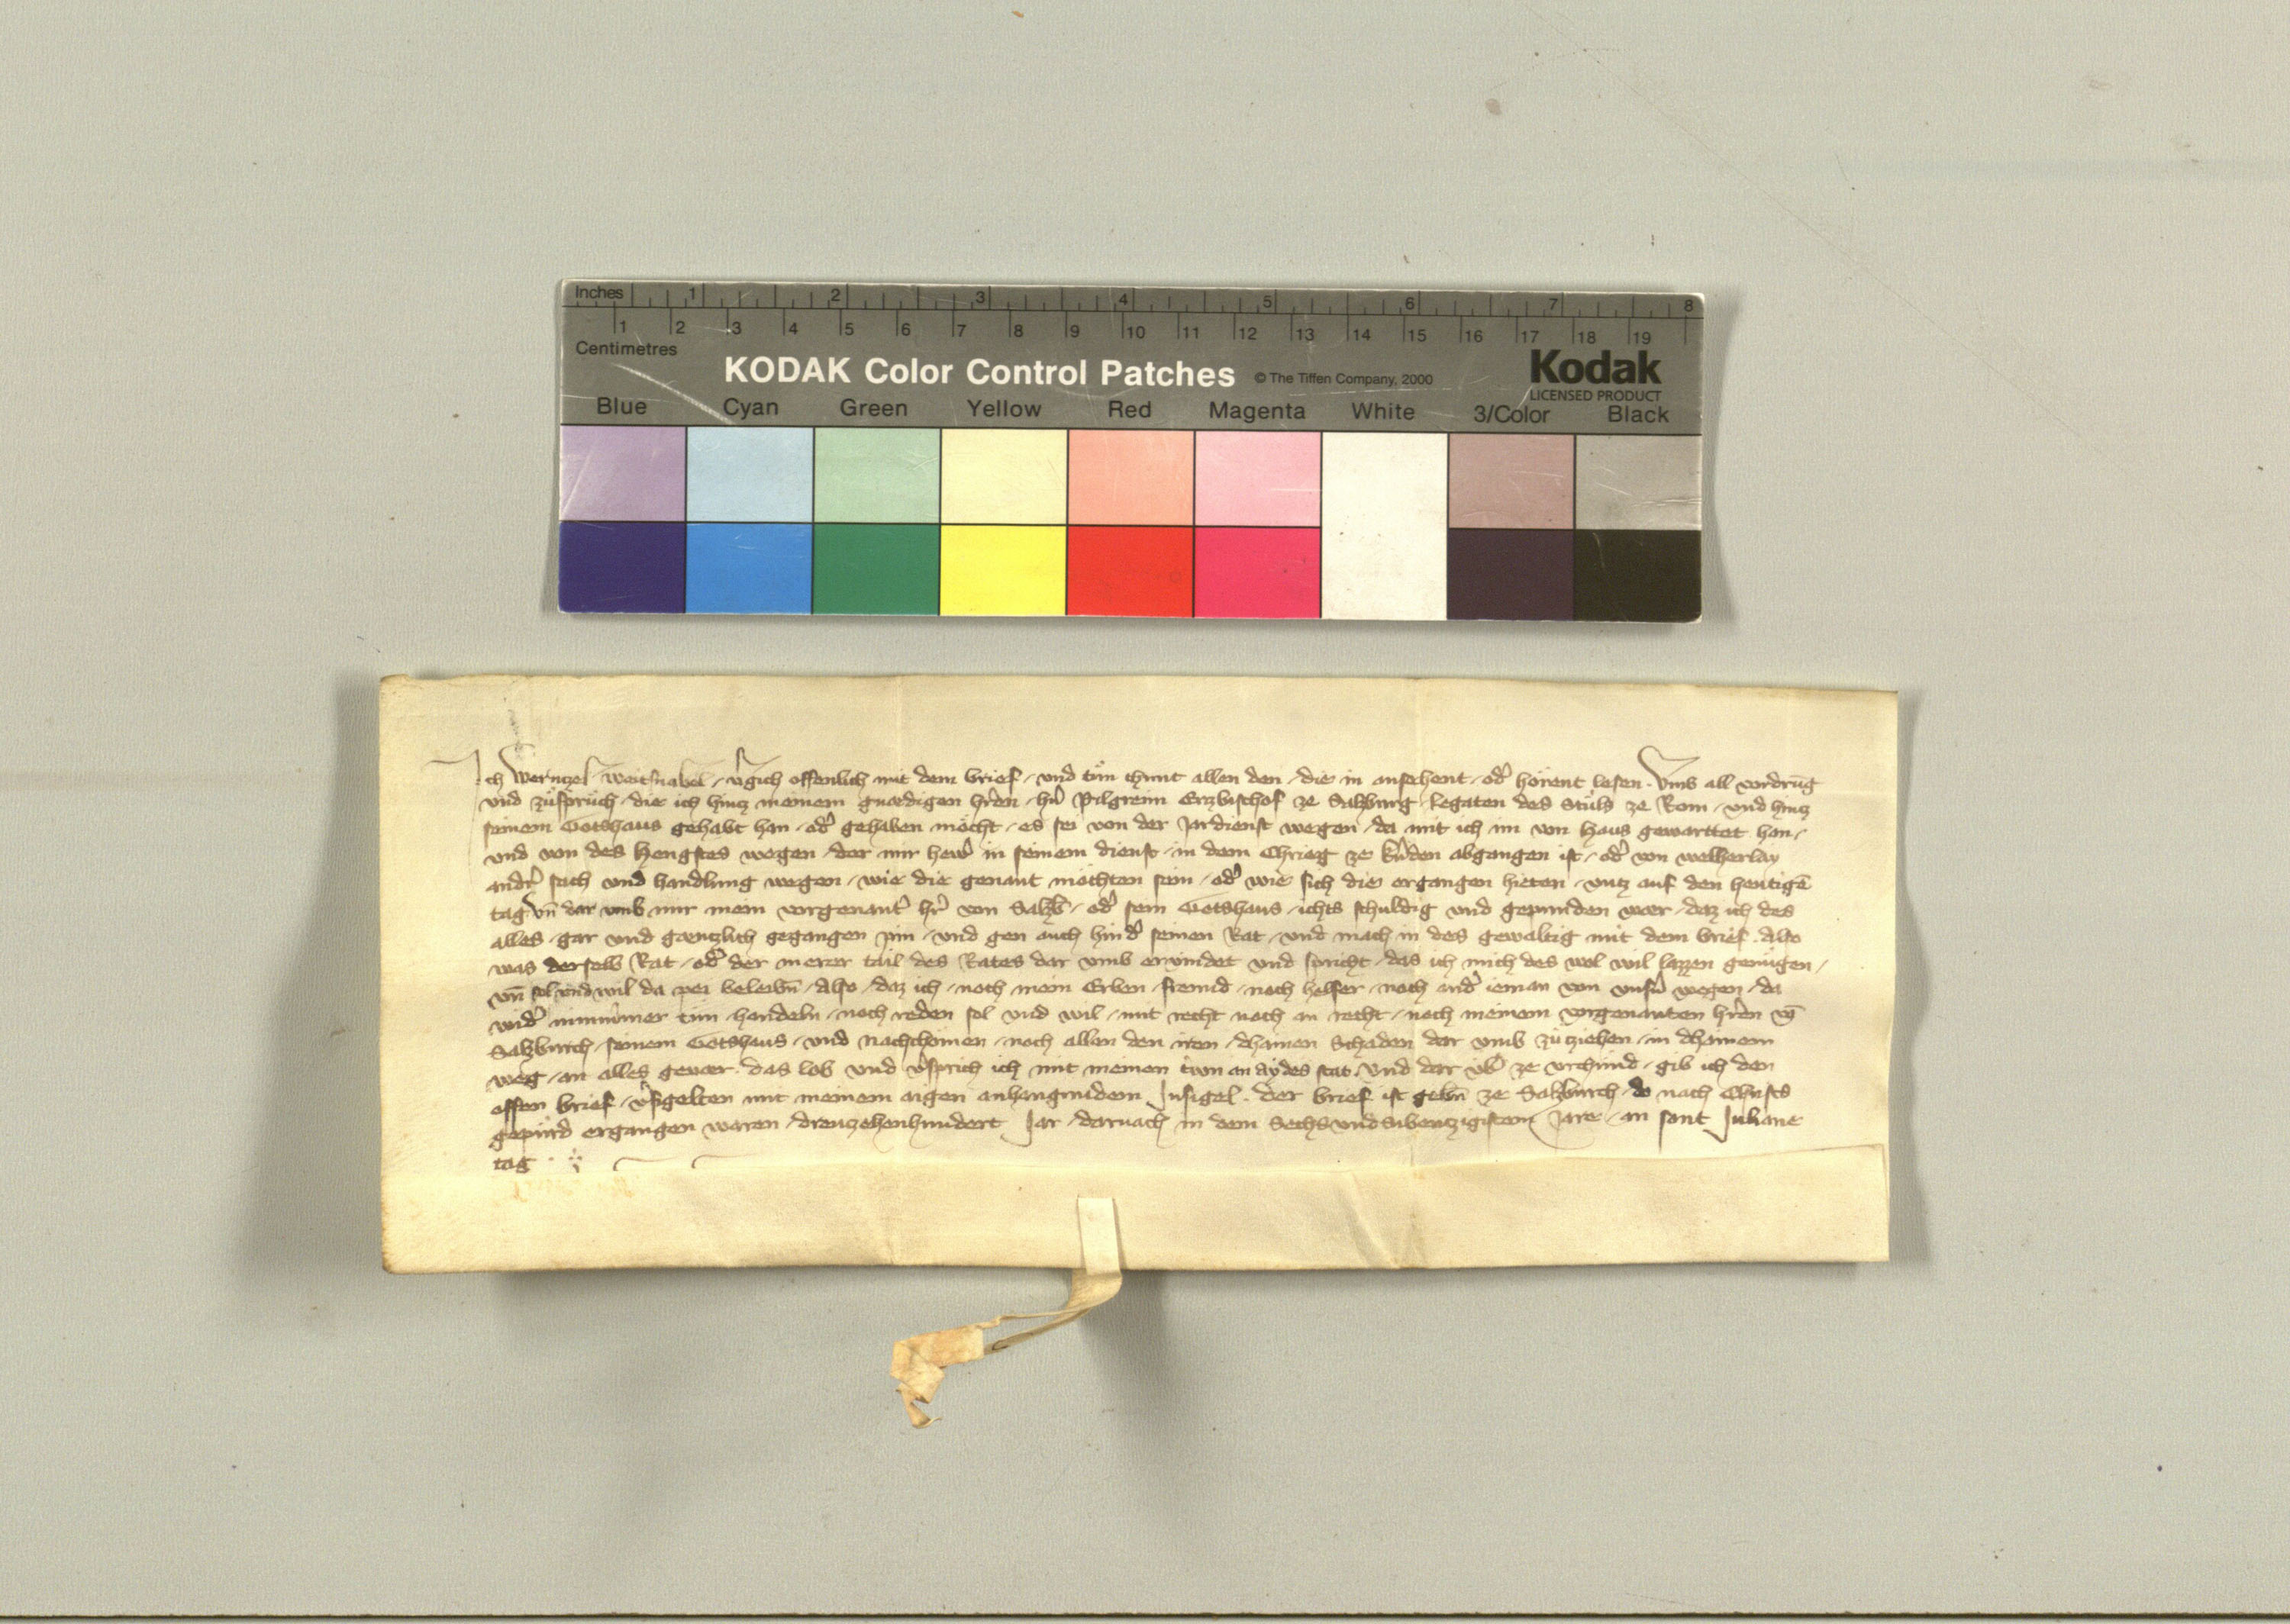 Inches 1 2 3 4 5 6 7 8
1 2 3 4 5 6 7 8 9 10 11 12 13 14 15 16 17 18 19
Centimetres
KODAK Color Control Patches © The Tiffen Company, 2000 Kodak
LICENSED PRODUCT
Blue Cyan Green Yellow Red Magenta White 3/Color Black
Ich Wernzel Weitsnabel / v͛gich offenlich mit dem brief / vnd tůn chunt allen den / die in ansehent / od͛ hörent lesen . Vmb all vordrūg
vnd zůsprüch / die ich hintz meinem gnædigen hr͛en / hr͛ Pilgreim Erzbischof ze Salzburg / legaten des Stůls ze Rom / vnd hintz
seinem Gotshaus gehabt han / od͛ gehaben möcht / es sei von der Jardienst wegen / da mit ich im von haus gewarttet han /
vnd von des Hengstes wegen / der mir hewr in seinem dienst / in dem Chrieg ze abgangen ist / od͛ von welherlay
andr͛ sach vnd handlung wegen / wie die genant möchten sein / od͛ wie sich die ergangen hieten / vntz auf den heutigē
tag vn̄ dar vmb mir mein vorgenant͛ hr͛ von Salzb͛ / od͛ sein Gotshaus / ichts schuldig vnd gepunden wær / daz ich des
alles / gar vnd gæntzlich gegangen pin / vnd gen auch hind͛ seinen Rat / vnd mach in des gewaltig mit dem brief . Also
was derselb Rat / od͛ der merer tail des Rates dar vmb ervindet vnd spricht / das ich mich des wol wil lazzen genügen /
vn̄ sol vnd wil da pei beleibn̄ / Also / daz ich / noch mein Erben / freund / noch helfer / noch and͛ ieman von vnsr͛ wegen / da
wid͛ nimmmer tůn / handeln / noch reden sol vnd wil / mit recht noch an recht / noch meinem vorgenanten hr͛en vō
Salzburch / seinem Gotshaus / vnd nachchomen / noch allen den iren / dhainen Schaden dar vmb zů ziehen / in dhainem
weg / an alles geuær . das lob vnd v͛sprich ich mit meinen trwn an aydes stat . Vnd dar vb͛ ze vrchünd / gib ich den
offen brief / v͛sigelten mit meinem aigen anhangundem Insigel . der brief ist gebn̄ ze Salzburch / do nach Christs
gepürd ergangen waren / dreuzehenhundert Jar / darnach in dem Sechsvndsibentzigistem Jare / an sant Juliane
tag